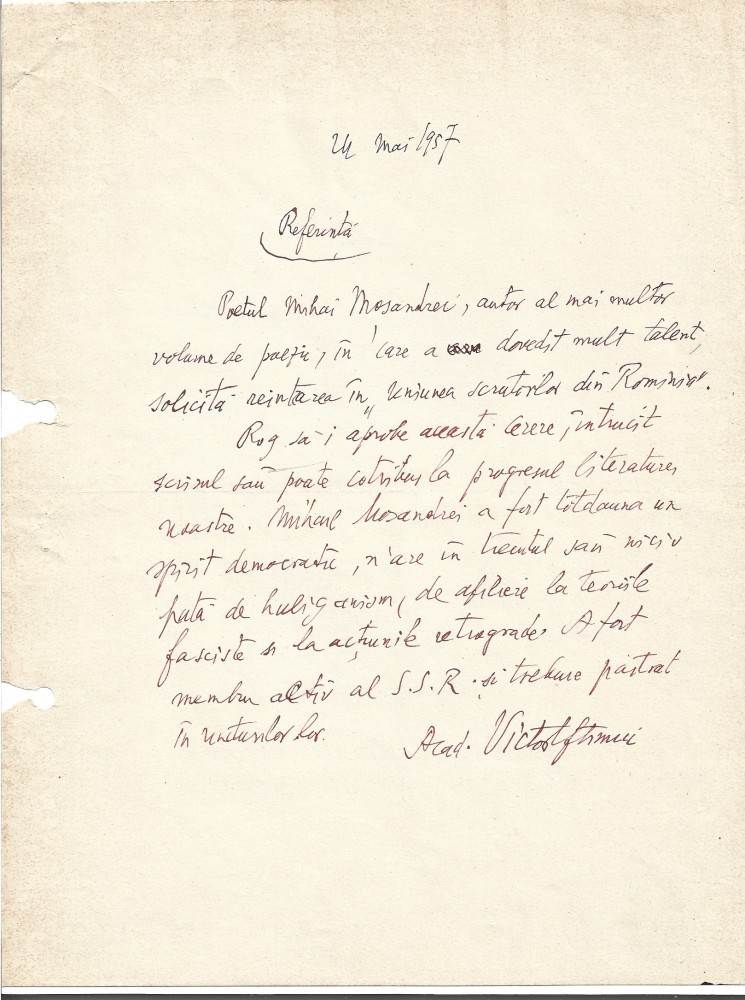 24 mai 1957
Referință
Poetul Mihai Mosandrei, autor al mai multor
volume de poezii, în care a dovedit mult talent,
solicită reintrarea în „Uniunea scriitorilor din Rominia".
Rog să-i aprobe această cerere, întrucit
scrisul său poate contribui la progresul literaturei
noastre. Mihail Mosandrei a fost totdauna un
spirit democratic, n'are în trecutul său nicio
pată de huliganism, de afiliere la teoriile
fasciste și la acțiunile retrograde. A fost
membru activ al S.S.R. și trebuie păstrat
în
Acad. Victor Eftimiu